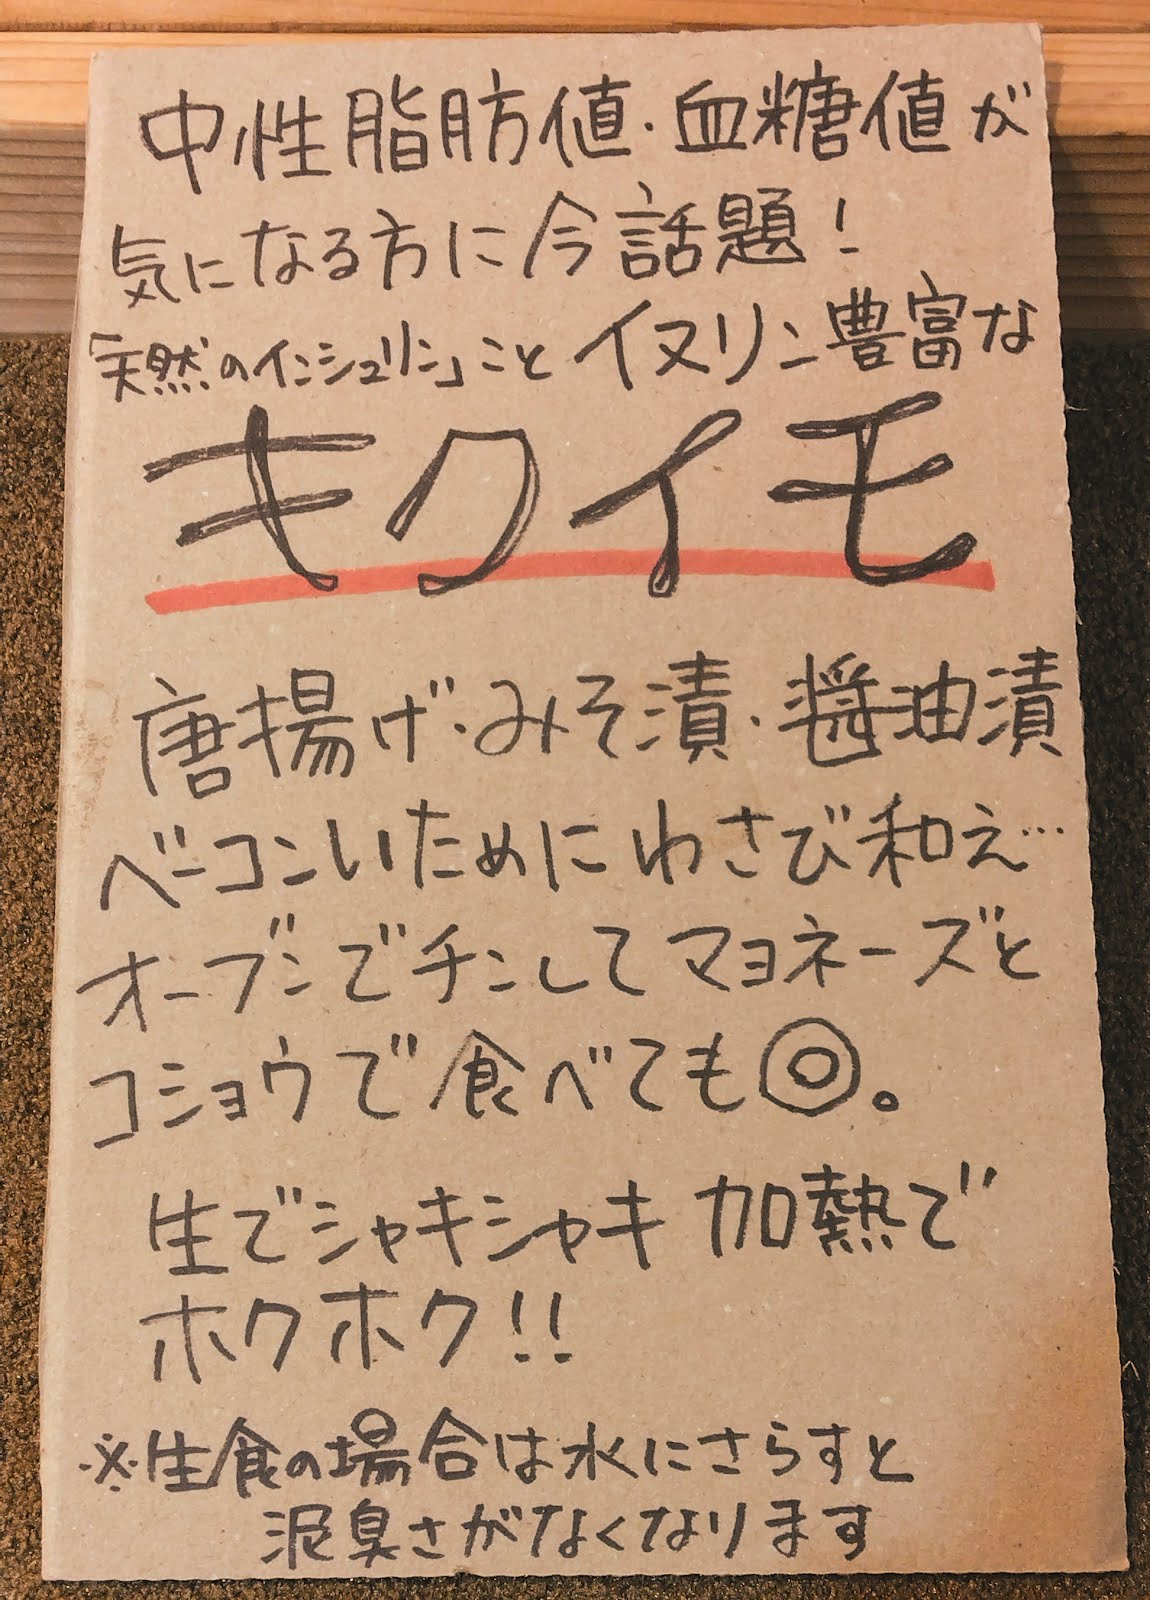 中性脂肪値・血糖値が
気になる方に今話題!
「天然のインシュリン」こと イヌリン豊富な
キクイモ
唐揚げ・みそ漬・醤油漬
ベーコンいためにわさび和え…
オーブンでチンしてマヨネーズと
コショウで食べても◎。
生でシャキシャキ 加熱で
ホクホク!!
※生食の場合は水にさらすと
泥臭さがなくなります